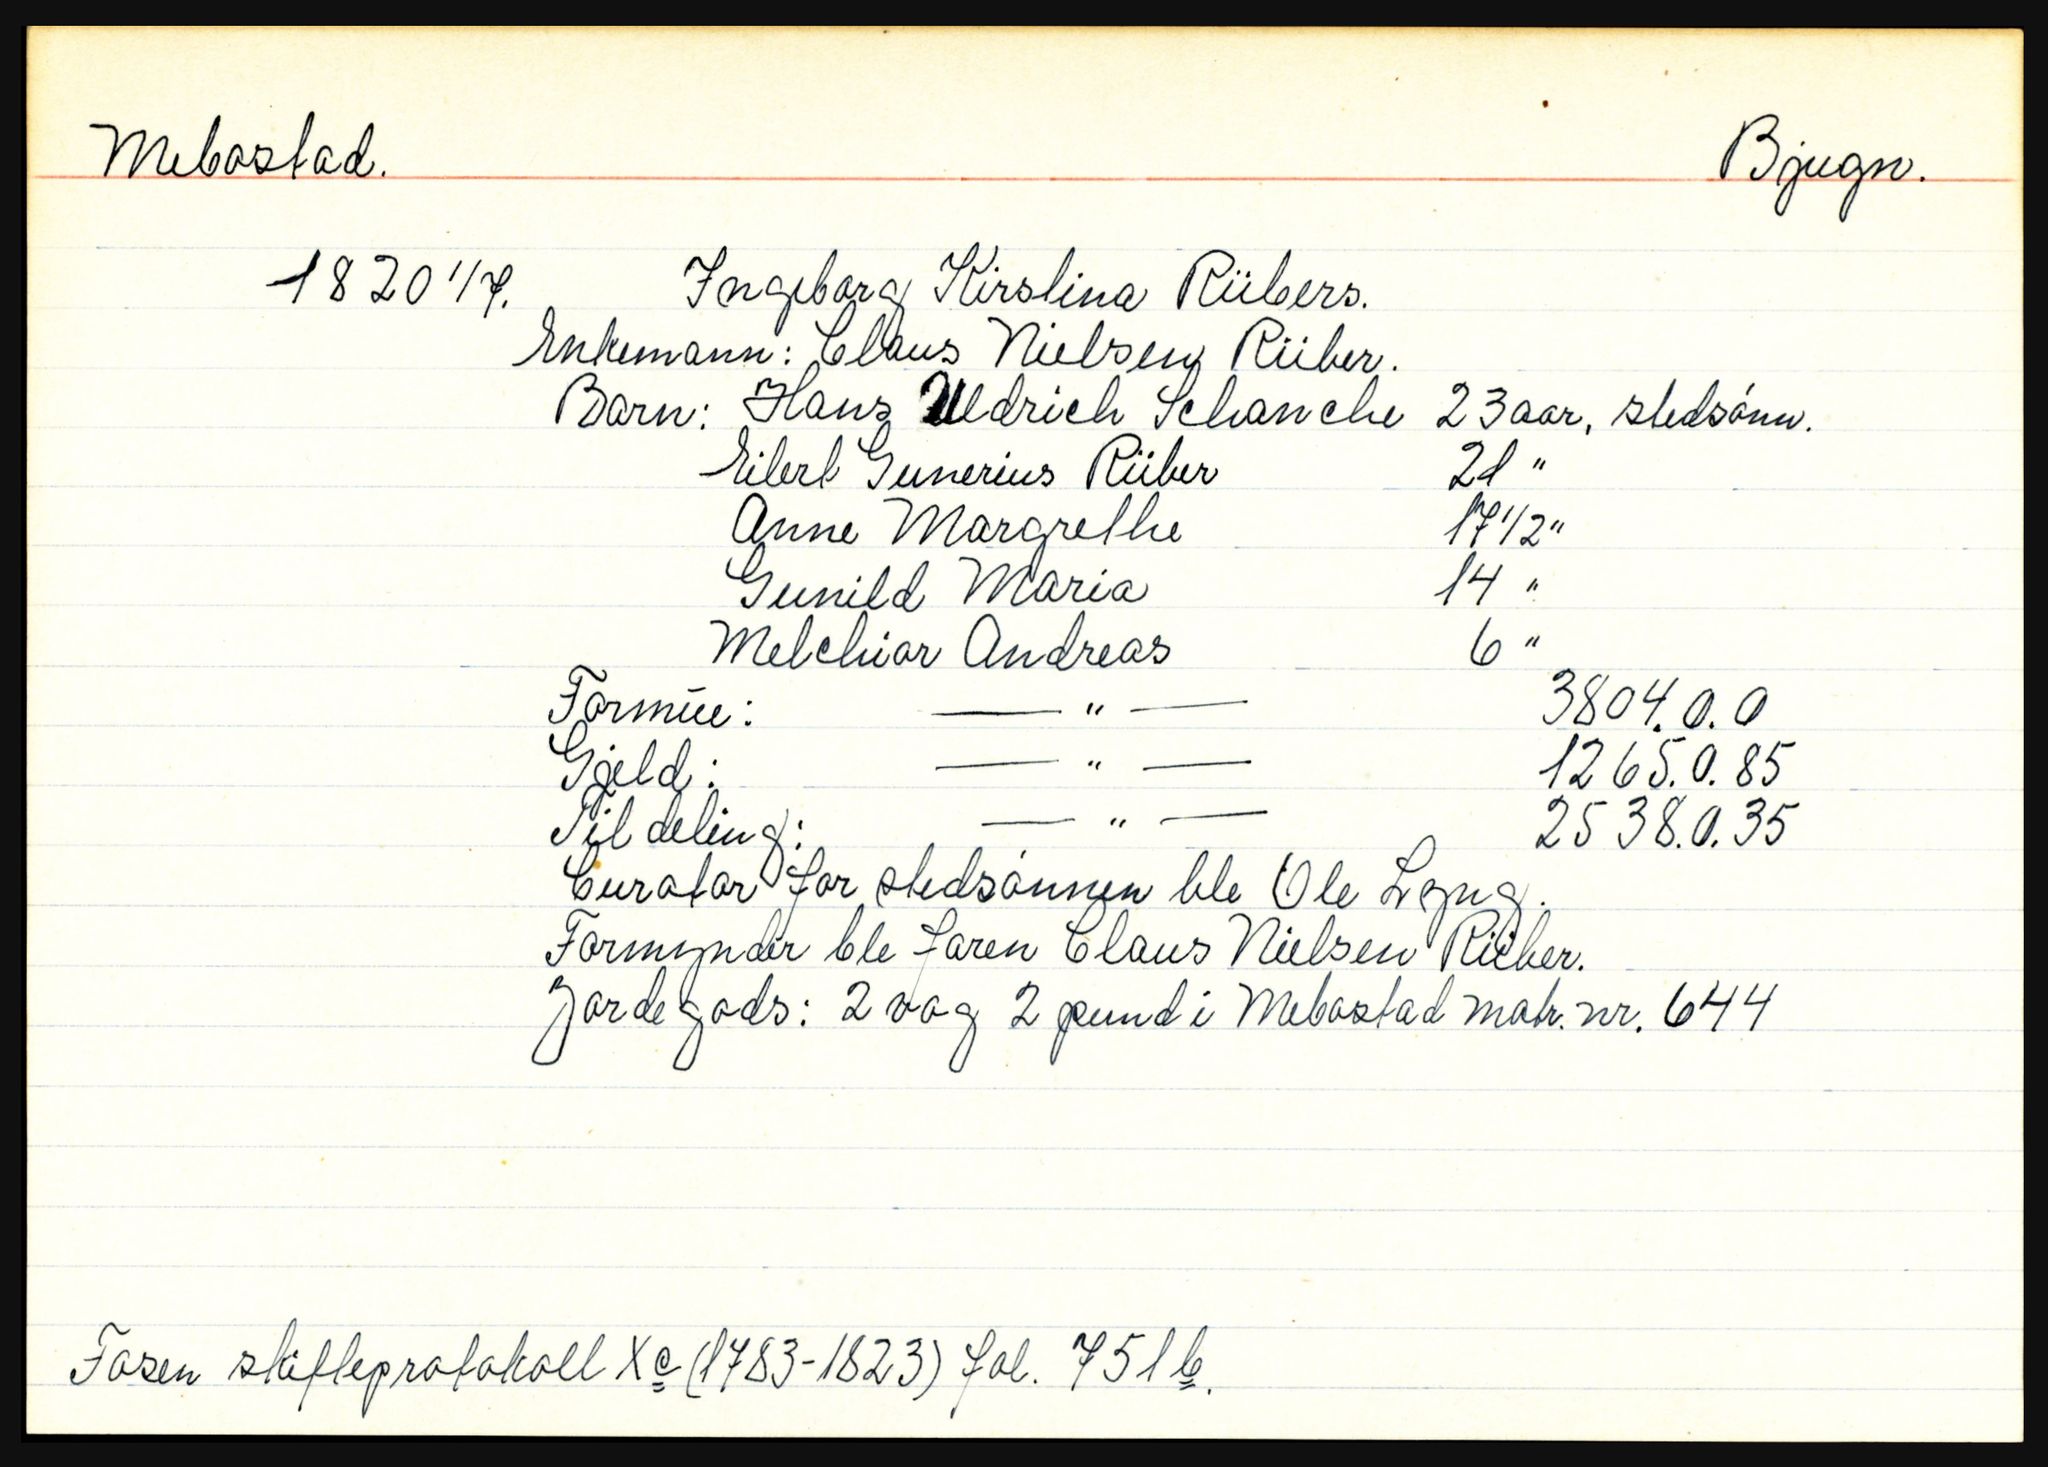 Mebostad. Bjugn.
1820 1/7. Ingeborg Kirstina Rübers.
Enkemann: Claus Nielsen Rüber.
Barn: Hans Uldrich Schanche 23 aar, stedsønn.
Eilert Gunerius Rüber 21 "
Anne Margrethe 17 1/2 "
Gunild Maria 14 "
Melchior Andreas 6 "
Formue: — " — 3804.0.0
Gjeld: — " — 1265.0.85
Til deling: — " — 2538.0.35
Curator for stedsønnen ble Ole Lyng.
Formynder ble faren Claus Nielsen Rüber.
Jordegods: 2 vog 2 pund i Mebostad matr. nr. 644
Fosen skifteprotokoll Xc (1783-1823) fol. 751b.